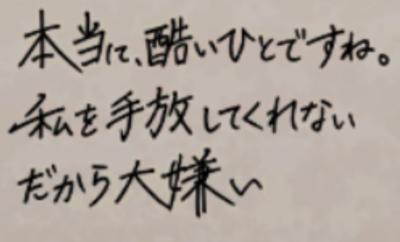 本当に、酷いひとですね。
私を手放してくれない
だから大嫌い